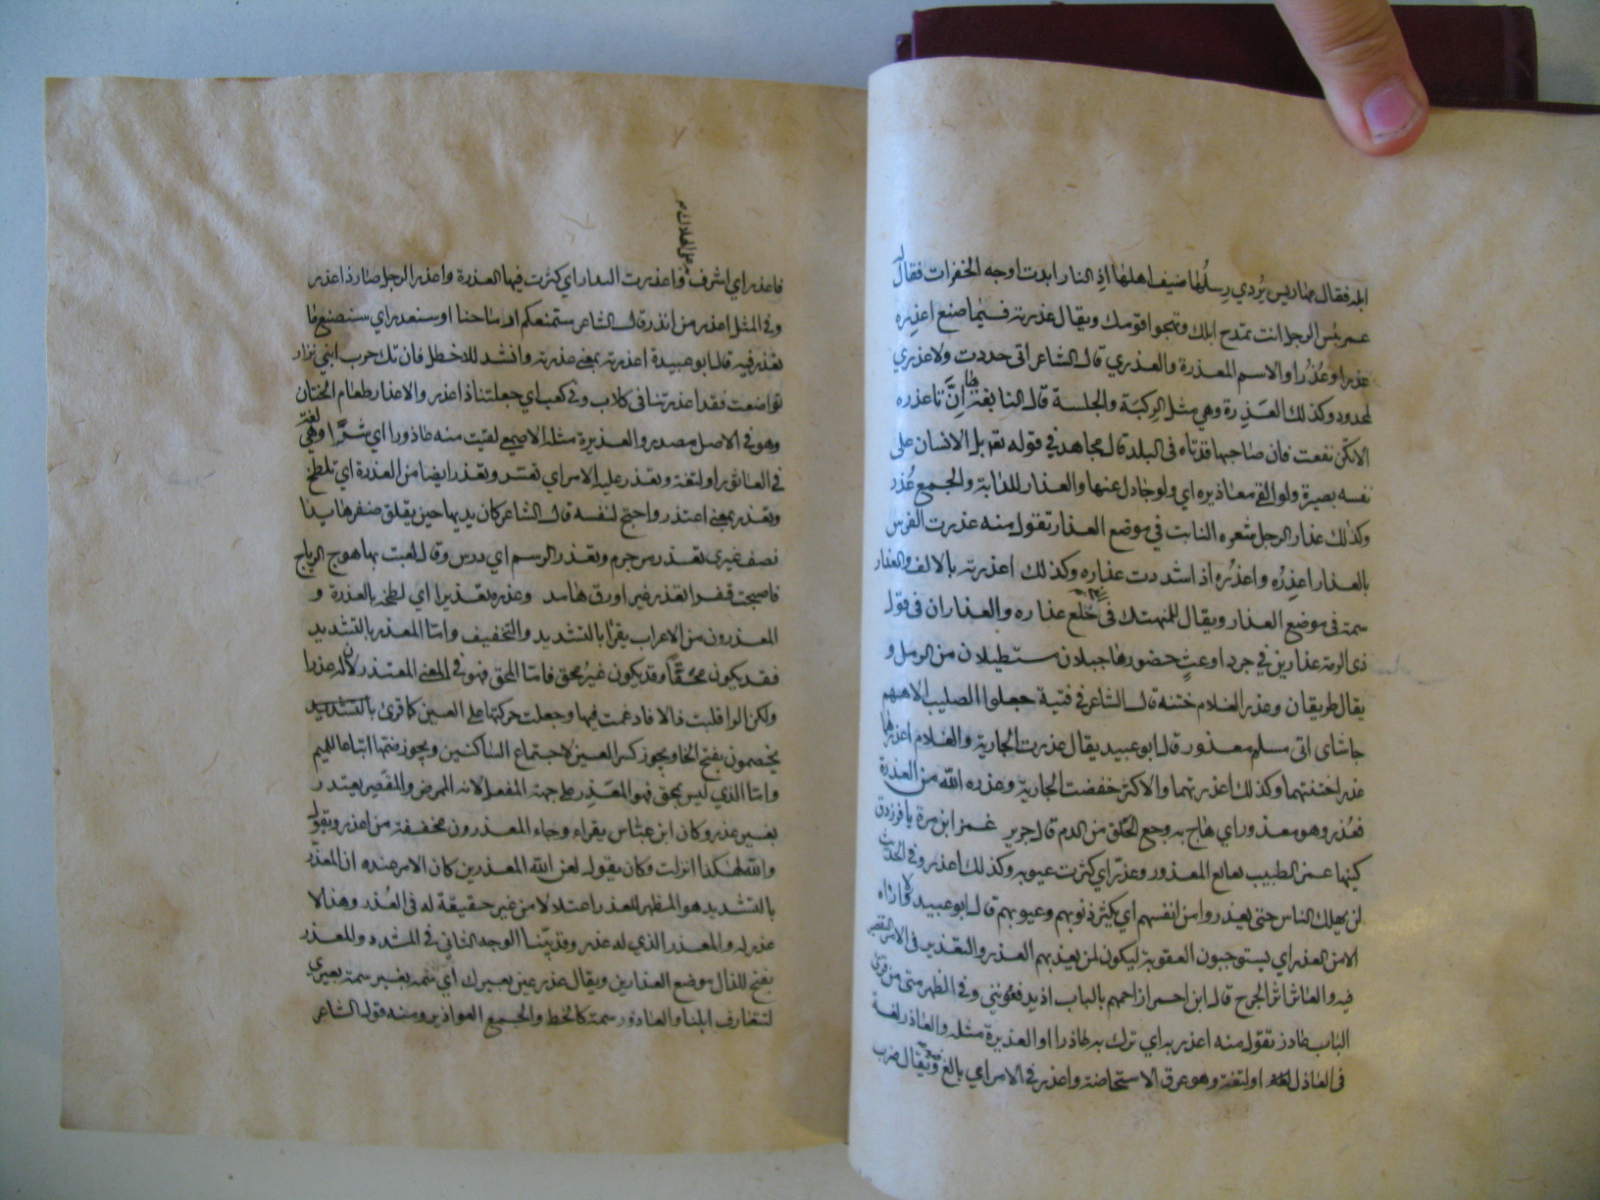 ابله فقال عماريس يردي رسلها ضيف اهلها اذ النار ابدت اوجه الخفرات فقال له
عمر بئس الرجل انت تمدح ابلك وتهجوا قومك ويقال عذرته فيما صنع اعذره
عذرا وعذرا والاسم المعذرة والعذري قال الشاعر انى حددت ولا عذري
لمحدود وكذلك العذرة وهي مثل الركبة والجلسة قال النابغة ها ان تا عذره
الا تكن نفعت فان صاحبها قد تاه في البلد قال مجاهد في قوله تعه بل الانسان على
نفسه بصيرة ولو القى معاذيره اي ولو جادل عنها والعذار للدابة والجمع عذر
وكذلك عذار الرجل شعره النابت في موضع العذار تقول منه عذرت الفرس
بالعذار اعذره واعذره اذ اشددت عذاره وكذلك اعذرته بالالف والعذار
سمة في موضع العذار ويقال للمنهتك في خلع عذاره والعذاران في قول
ذى الرمة عذارين في جرداء وعث خصورها جبلان مستطيلان من الرمل و
يقال طريقان وعذر الغلام ختنه قال الشاعر في فتية جعلوا الصليب الاههم
حاشاى انى مسلم معذور قال ابو عبيد يقال عذرت الجارية والغلام اعذرهما
عذرا ختنتهما وكذلك اعذرتهما والاكثر خفضت الجارية وعذره الله من العذرة
فعذر وهو معذور اي هاج به وجع الحلق من الدم قال جرير غمز ابن مرة يا فرزدق
كينها غمز الطبيب نغانغ المعذور وعذر اي كثرت عيوبه وكذلك اعذر وفي الحديث
لن يهلك الناس حتى يعذروا من انفسهم اي يكثر ذنوبهم وعيوبهم قال ابو عبيد ولا اراه
الا من العذر اي يستوجبون العقوبة ليكون لمن يعذبهم العذر والتعذير في الامر التقصير
فيه والعاثر اثر الجرح قال ابن احمر ازاحمهم بالباب اذ يدفعونني وفي الظهر مني من قرى
الباب عاذر تقول منه اعذر به اي ترك به عاذرا والعذيرة مثله والعاذر لغة
في العاذل او لثغة وهو عرق الاستحاضة واعذر في الامر اي بالغ ويقال ضرب
على الهلاك
فاعذر اي اشرف واعذرت الدار اي كثرت فيها العذرة واعذر الرجل صار ذا عذر
وفي المثل اعذر من انذر قال الشاعر ستمنعكم ارماحنا او سنعذر اي سنصنع ما
نعذر فيه قال ابو عبيدة اعذرته بمعنى عذرته وانشد للاخطل فان تك حرب ابني نزار
تواضعت فقد اعذرتنا في كلاب وفي كعب اي جعلتنا ذا عذر والاعذار طعام الختان
وهو في الاصل مصدر والعذيرة مثله الاصمعى لقيت منه عاذورا اي شرا وهي لغة
في العاثور او لثغة وتعذر عليه الامر اي تعسر وتعذر ايضا من العذرة اي تلطخ
وتعذر بمعنى اعتذر واحتج لنفسه قال الشاعر كان يديها حين يقلق ضفرها يدا
نصف غيرى تعذر من جرم وتعذر الرسم اي درس وقال لعبت بها هوج الرياح
فاصبحت قفرا تعذر غير اورق هامد وعذره تعذيرا اي لطخه بالعذرة و
المعذرون من الاعراب يقرا بالتشديد والتخفيف واما المعذر بالتشديد
فقد يكون محقا وقد يكون غير محق فاما المحق فهو في المعنى المعتذر لان له عذرا
ولكن التاء قلبت ذالا فادغمت فيها وجعلت حركتها على العين كما قرئ بالتشديد
يخصمون بفتح الخا ويجوز كسر العين لاجتماع الساكنين ويجوز ضمها اتباعا للميم
واما الذي ليس بمحق فهو المعذر على جهة المفعل لانه الممرض والمقصر يعتذر
بغير عذر وكان ابن عباس يقراء وجاء المعذرون مخففة من اعذر ويقول
والله لهكذا انزلت وكان يقول لعن الله المعذرين كان الامر عنده ان المعذر
بالتشديد هو المظهر للعذر اعتلالا من غير حقيقة له في العذر وهذا لا
عذر له والمعذر الذي له عذر وقد بينا الوجه الثاني في المشدد والمعذر
بفتح الذال موضع العذارين ويقال عذر عني بعيرك اي سمه بغير سمة بعيري
لتتعارف ابلنا والعاذور سمة كالخط والجمع العواذير ومنه قول الشاعر